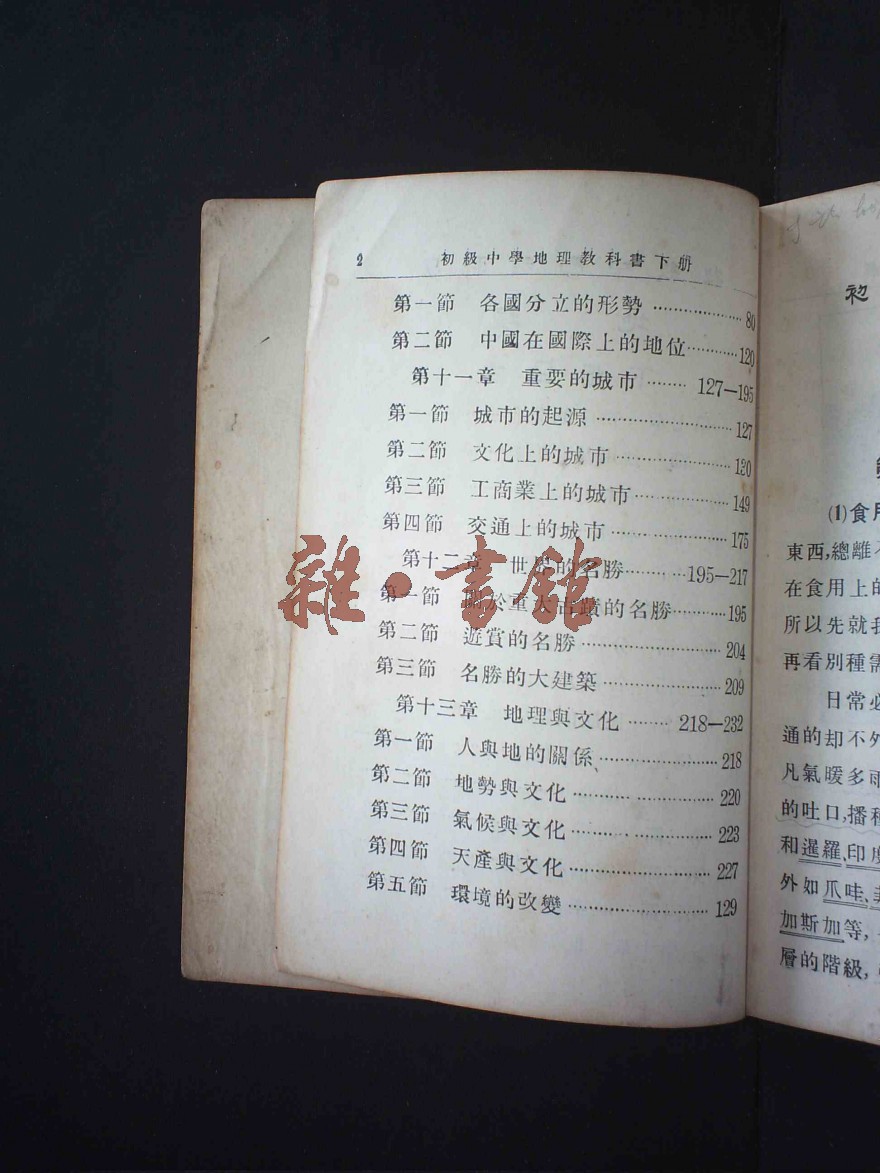 2 初級中學地理教科書下册
第一節 各國分立的形勢 ………………… 80
第二節 中國在國際上的地位………… 120
第十一章 重要的城市 ……… 127—195
第一節 城市的起源 ………………………… 127
第二節 文化上的城市 …………………… 120
第三節 工商業上的城市………………… 149
第四節 交通上的城市 …………………… 175
第十二章 世界的名勝………… 195—217
第一節 關於重大古蹟的名勝………… 195
第二節 遊賞的名勝 ……………………… 204
第三節 名勝的大建築 …………………… 209
第十三章 地理與文化 ……… 218—232
第一節 人與地的關係 …………………… 218
第二節 地勢與文化 ……………………… 220
第三節 氣候與文化 ……………………… 223
第四節 天產與文化 ……………………… 227
第五節 環境的改變 ……………………… 129
雜·書館
初
(1)食用
東西,總離
在食用上的
所以先就我
再看別種需
日常必
通的却不外
凡氣暖多雨
的吐口,播種
和暹羅、印度
外如爪哇、
加斯加等,
層的階級,